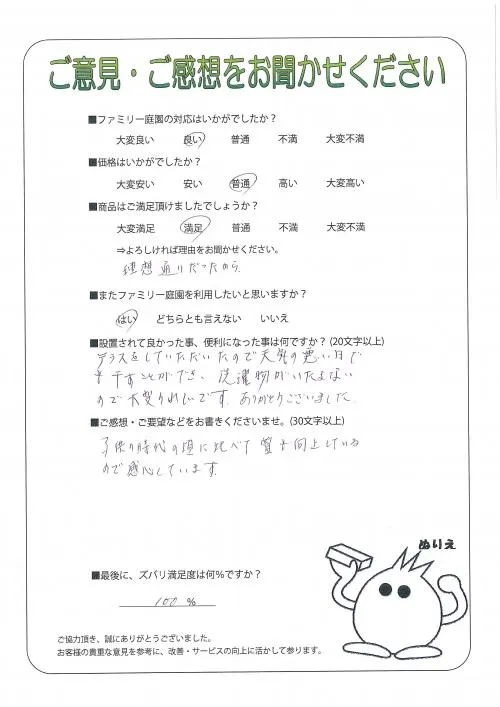 ご意見・ご感想をお聞かせください
■ファミリー庭園の対応はいかがでしたか？
大変良い 良い 普通 不満 大変不満
■価格はいかがでしたか？
大変安い 安い 普通 高い 大変高い
■商品はご満足頂けましたでしょうか？
大変満足 満足 普通 不満 大変不満
⇒よろしければ理由をお聞かせください。
理想通りだったから
■またファミリー庭園を利用したいと思いますか？
はい どちらとも言えない いいえ
■設置されて良かった事、便利になった事は何ですか？(20文字以上)
テラスをしていただいたので天気の悪い日で
も干すことができ、洗濯物がいたまない
ので大変うれしいです。ありがとうございました。
■ご感想・ご要望などをお書きくださいませ。(30文字以上)
子供の時代の頃に比べて質も向上している
ので感心しています。
ぬりえ
■最後に、ズバリ満足度は何％ですか？
100 %
ご協力頂き、誠にありがとうございました。
お客様の貴重な意見を参考に、改善・サービスの向上に活かして参ります。